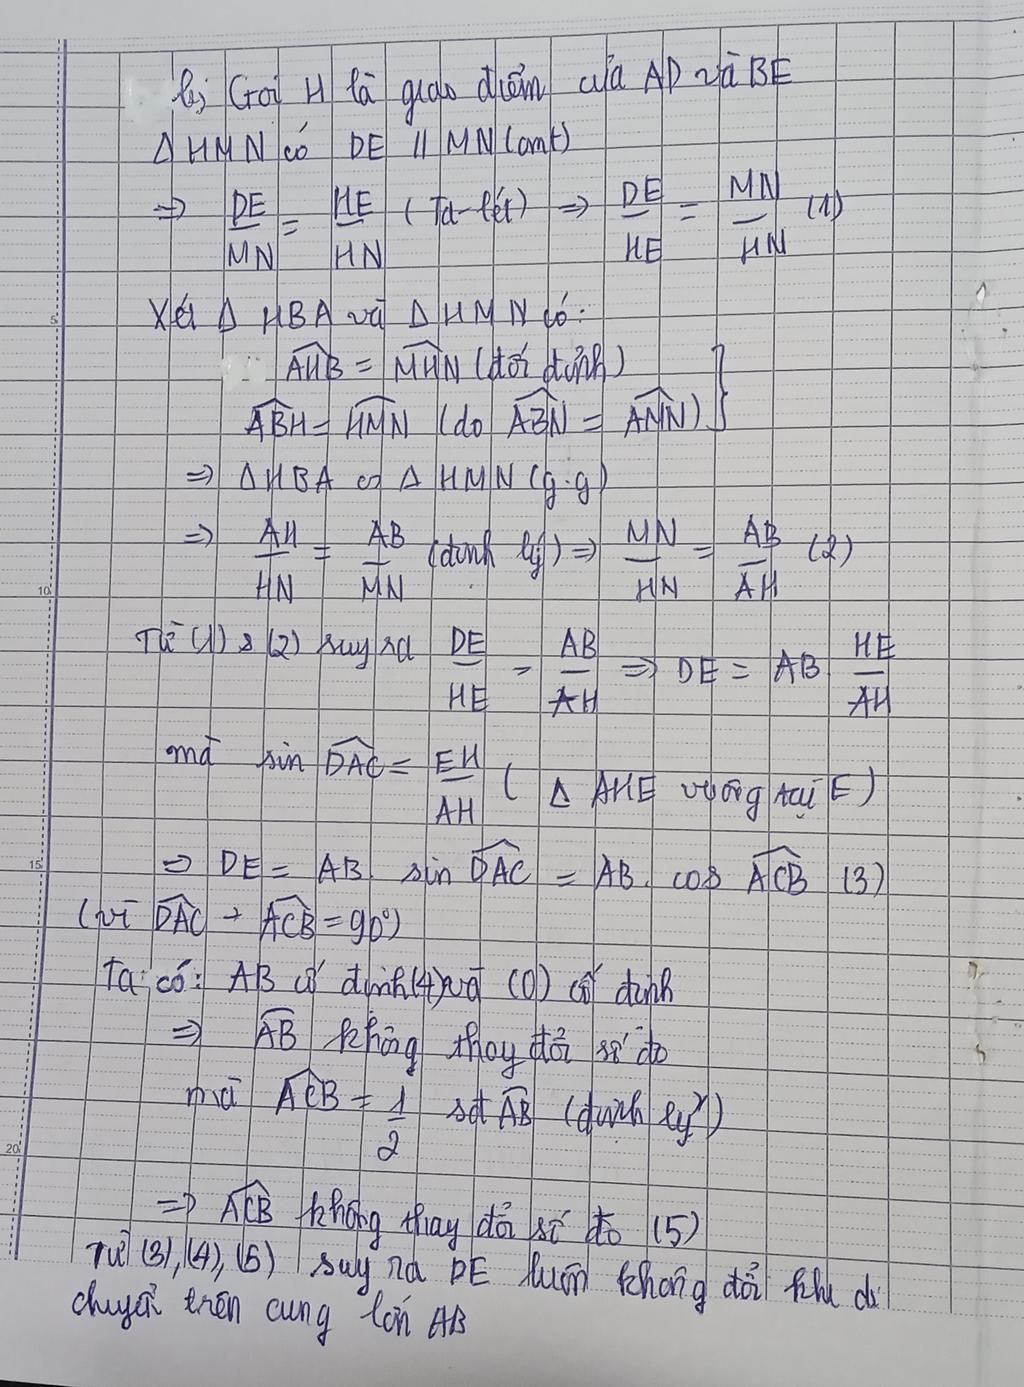 b, Gọi H là giao điểm của AD và BE
Δ HMN có DE // MN (cmt)
=> DE/MN = HE/HN (Ta-lét) => DE/HE = MN/HN (1)
Xét Δ HBA và Δ HMN có:
AHB = MHN (đối đỉnh)
ABH = HMN (do ABN = AMN) }
=> Δ HBA ∽ Δ HMN (g.g)
=> AH/HN = AB/MN (định lý) => MN/HN = AB/AH (2)
Từ (1) & (2) suy ra DE/HE = AB/AH => DE = AB. HE/AH
mà sin DAC = EH/AH ( Δ AHE vuông tại E)
=> DE = AB. sin DAC = AB. cos ACB (3)
(vì DAC + ACB = 90°)
Ta có: AB cố định (4) và (O) cố định
=> AB không thay đổi số đo
mà ACB = 1/2 sđ AB (định lý)
=> ACB không thay đổi số đo (5)
Từ (3), (4), (5) suy ra DE luôn không đổi khi di
chuyển trên cung lớn AB
5
10
15
20